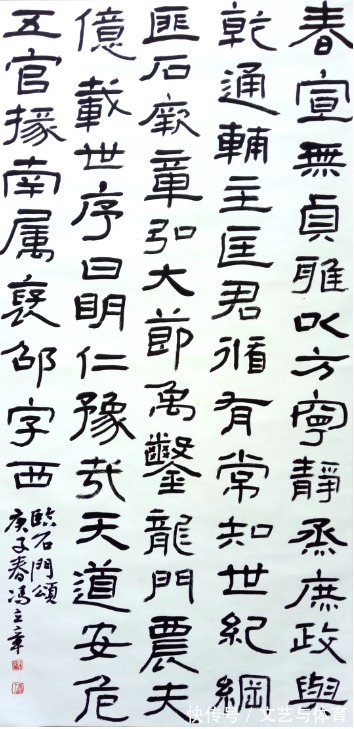 春宣無貞雅以方寧靜烝庶政與
乾通輔主匡君循有常知世紀綱
匪石厥章弘大節禹鑿龍門農夫
億載世序曰明仁豫哉天道安危
五官掾南属褒邵字西
臨石門頌
庚子春冯立章
快传号 / 文艺与体育